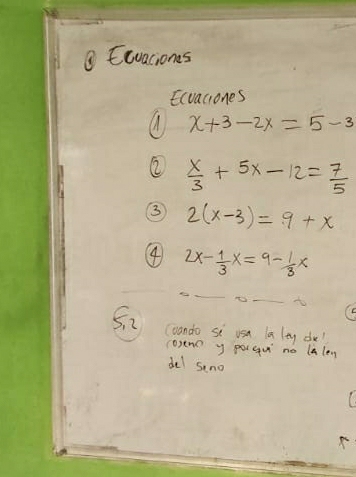 ① Ecuaciones
Ecuaciones
① x+3-2x = 5-3
② x/3 + 5x-12 = 7/5
③ 2(x-3) = 9 + x
④ 2x-1/3x = 9-1/3x
5,2 Cuando se usa la ley del
coseno y porqué no la ley
del seno